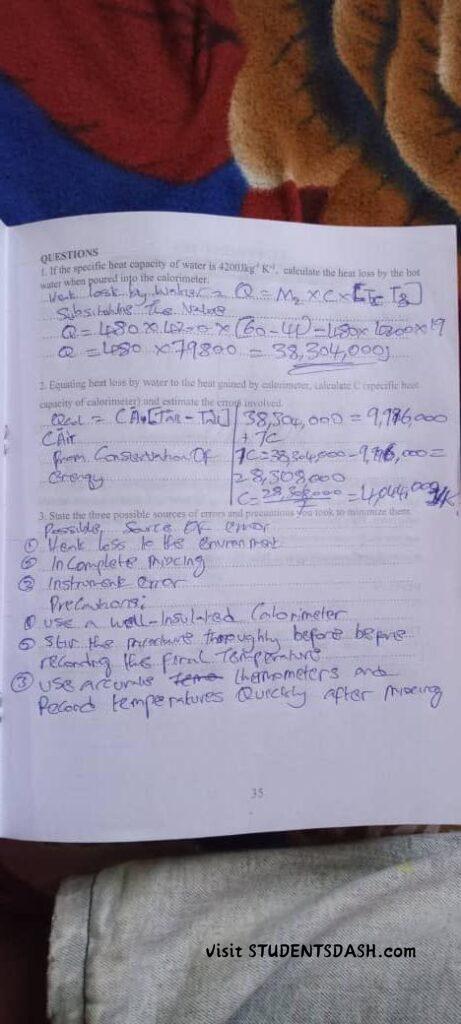 QUESTIONS
1. If the specific heat capacity of water is 4200Jkg⁻¹ K⁻¹, calculate the heat loss by the hot
water when poured into the calorimeter.
Heat loss by Water = Q = M₂ × C × [
Q = 480 × 4200 × (60 - 41) = 480 × 4200 × 19
Q = 480 × 79800 = 38,304,000J
2. Equating heat loss by water to the heat gained by calorimeter, calculate C (specific heat
capacity of calorimeter) and estimate the errors involved.
38,304,000 = 9,796,000
+ 7C
from Conservation Of
7C = 38,304,000 - 9,996,000 =
Energy
28,308,000
C = 28,308,000 = 4,044,000
3. State the three possible sources of errors and precautions you took to minimize them.
Possible Source Of error
① Heat loss to the environment
② Incomplete mixing
③ Instrument error
Precautions:
① Use a well-insulated Calorimeter
② Stir the mixture thoroughly before before
recording the final Temperature
③ Use accurate thermometers and
Record temperatures Quickly after mixing
35
Visit STUDENTSDASH.com